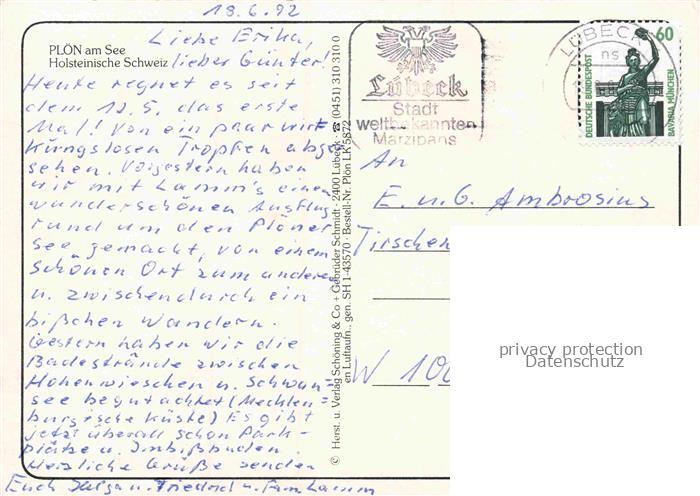 18.6.92
PLÖN am See
Holsteinische Schweiz
Liebe Erika,
lieber Günter!
Heute regnet es seit
dem 12.5. das erste
Mal! Von ein paar wir-
kungslosen Tropfen abge-
sehen. Vorgestern haben
wir mit Lamm's einen
wunderschönen Ausflug
rund um den Plöner
see gemacht, von einem
schönen Ort zum anderen
u. zwischendurch ein
bißchen wandern.
Gestern haben wir die
Badestrände zwischen
Hohenwieschen u. Schwan-
see begutachtet (Mecklen-
burgische Küste) Es gibt
jetzt überall schon Park-
plätze u. Imbißbuden.
Herzliche Grüße senden
Euch Helga u. Friedrich u. Fam. Lamm
© Herst. u. Verlag Schöning & Co + Gebrüder Schmidt · 2400 Lübeck · ☎ (0451) 310 310 0
en Luftaufn., gen. SH 1-43570 · Bestell-Nr. Plön LK 5872
Lübeck
Stadt
weltbekannten
Marzipans
LÜBECK
ns
60
DEUTSCHE BUNDESPOST
BAVARIA MÜNCHEN
An
E. u. G. Ambrosius
Tirschen
W 100
privacy protection
Datenschutz